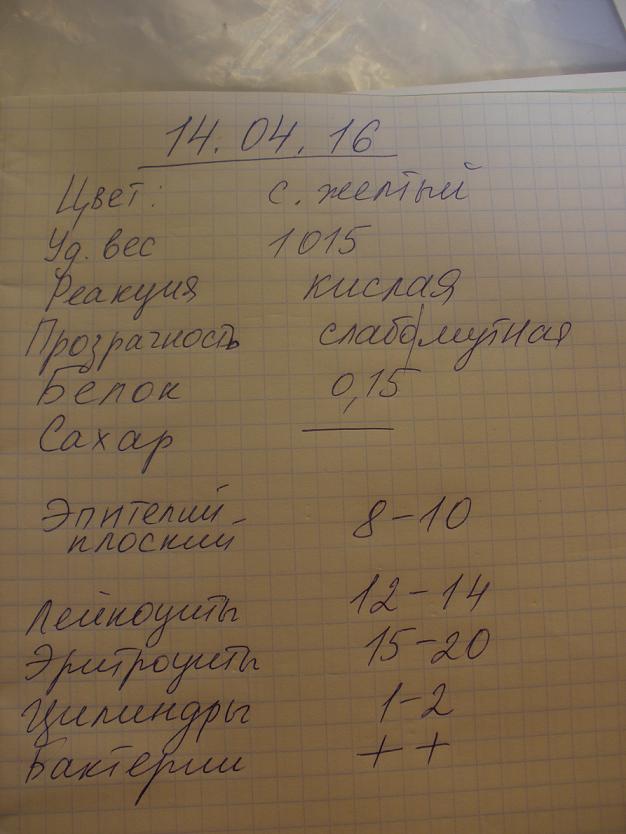 14.04.16
Цвет: с. желтый
Уд. вес 1015
Реакция кислая
Прозрачность слабо/мутная
Белок 0,15
Сахар —
Эпителий - 8-10
плоский
Лейкоциты 12-14
Эритроциты 15-20
Цилиндры 1-2
Бактерии ++